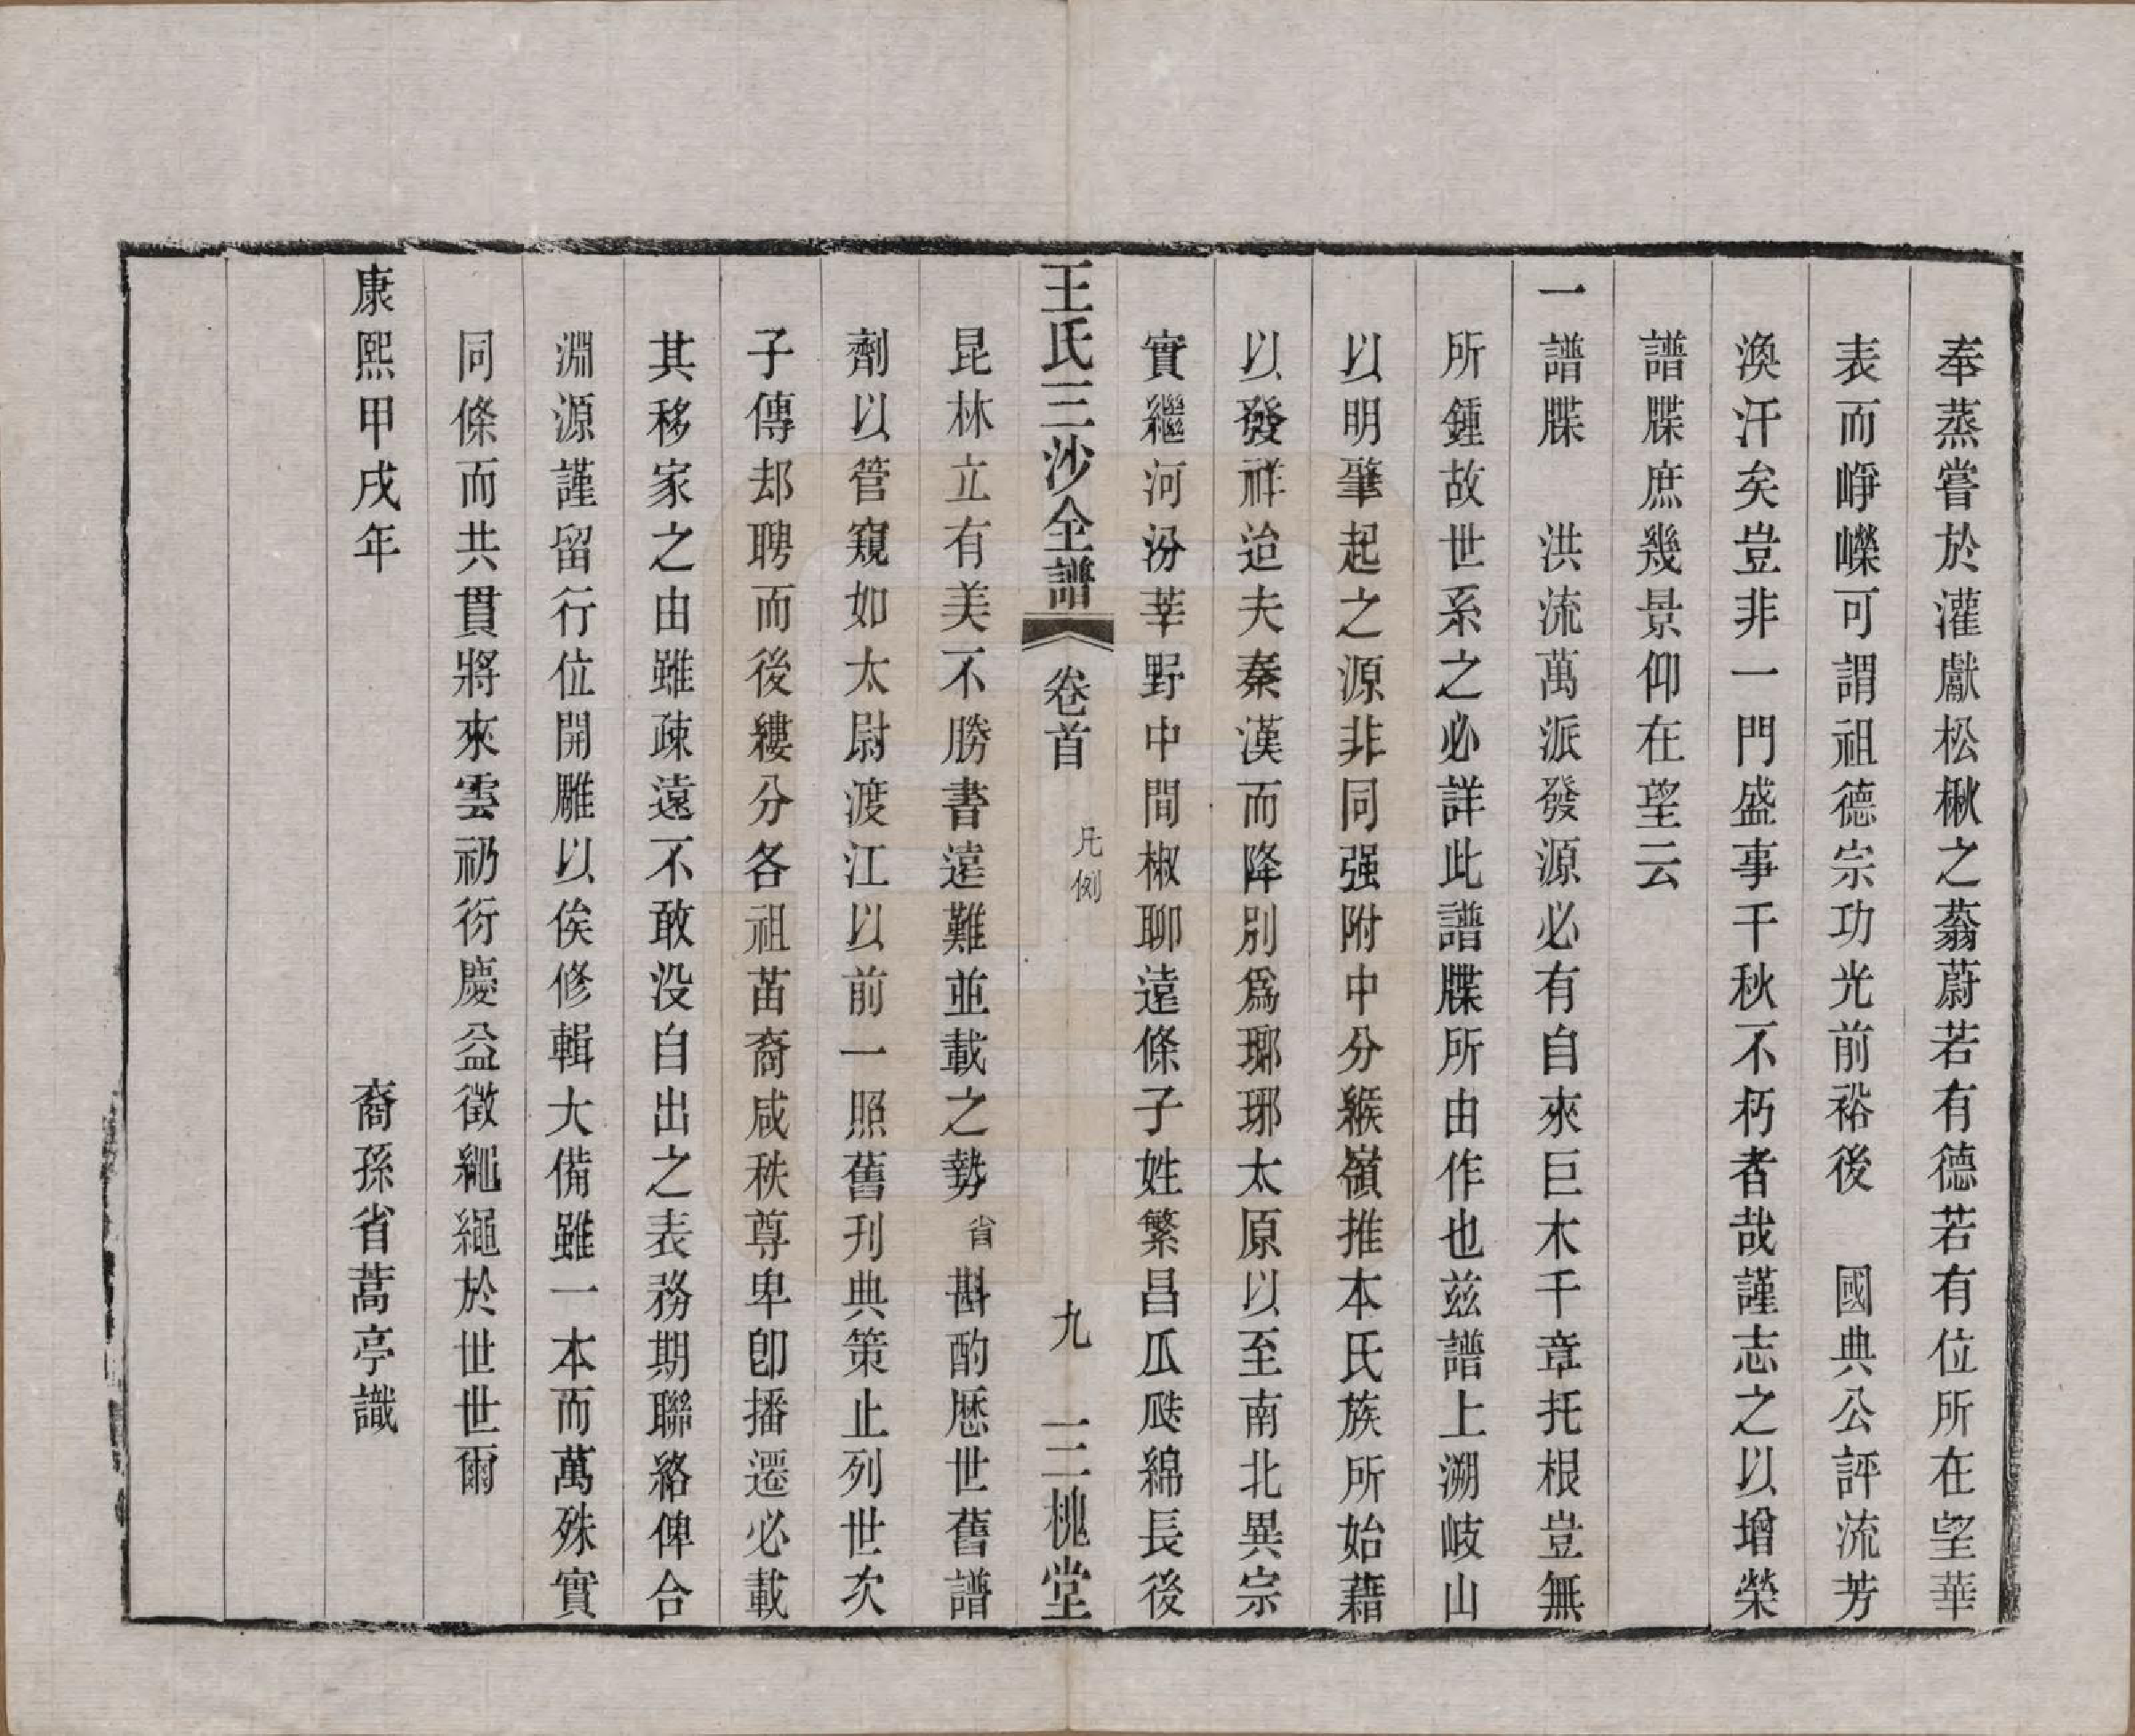 奉蒸嘗於灌獻松楸之蓊蔚若有德若有位所在望華
表而崢嶸可謂祖德宗功光前裕後　國典公評流芳
渙汗矣豈非一門盛事千秋不朽者哉謹志之以增榮
譜牒庶幾景仰在望云
一譜牒　洪流萬派發源必有自來巨木千章托根豈無
所鍾故世系之必詳此譜牒所由作也兹譜上溯岐山
以明肇起之源非同强附中分緱嶺推本氏族所始藉
以發祥迨夫秦漢而降別爲瑯琊太原以至南北異宗
實繼河汾莘野中間椒聊遠條子姓繁昌瓜瓞綿長後
王氏三沙全譜　卷首　凡例　九　三槐堂
昆林立有美不勝書遠難並載之勢省斟酌歷世舊譜
劑以管窺如太尉渡江以前一照舊刊典策止列世次
子傳却聘而後縷分各祖苗裔咸秩尊卑卽播遷必載
其移家之由雖疎遠不敢没自出之表務期聯絡俾合
淵源謹留行位開雕以俟修輯大備雖一本而萬殊實
同條而共貫將來雲礽衍慶益徵繩繩於世世爾
康熙甲戌年　　　裔孫省蒿亭識